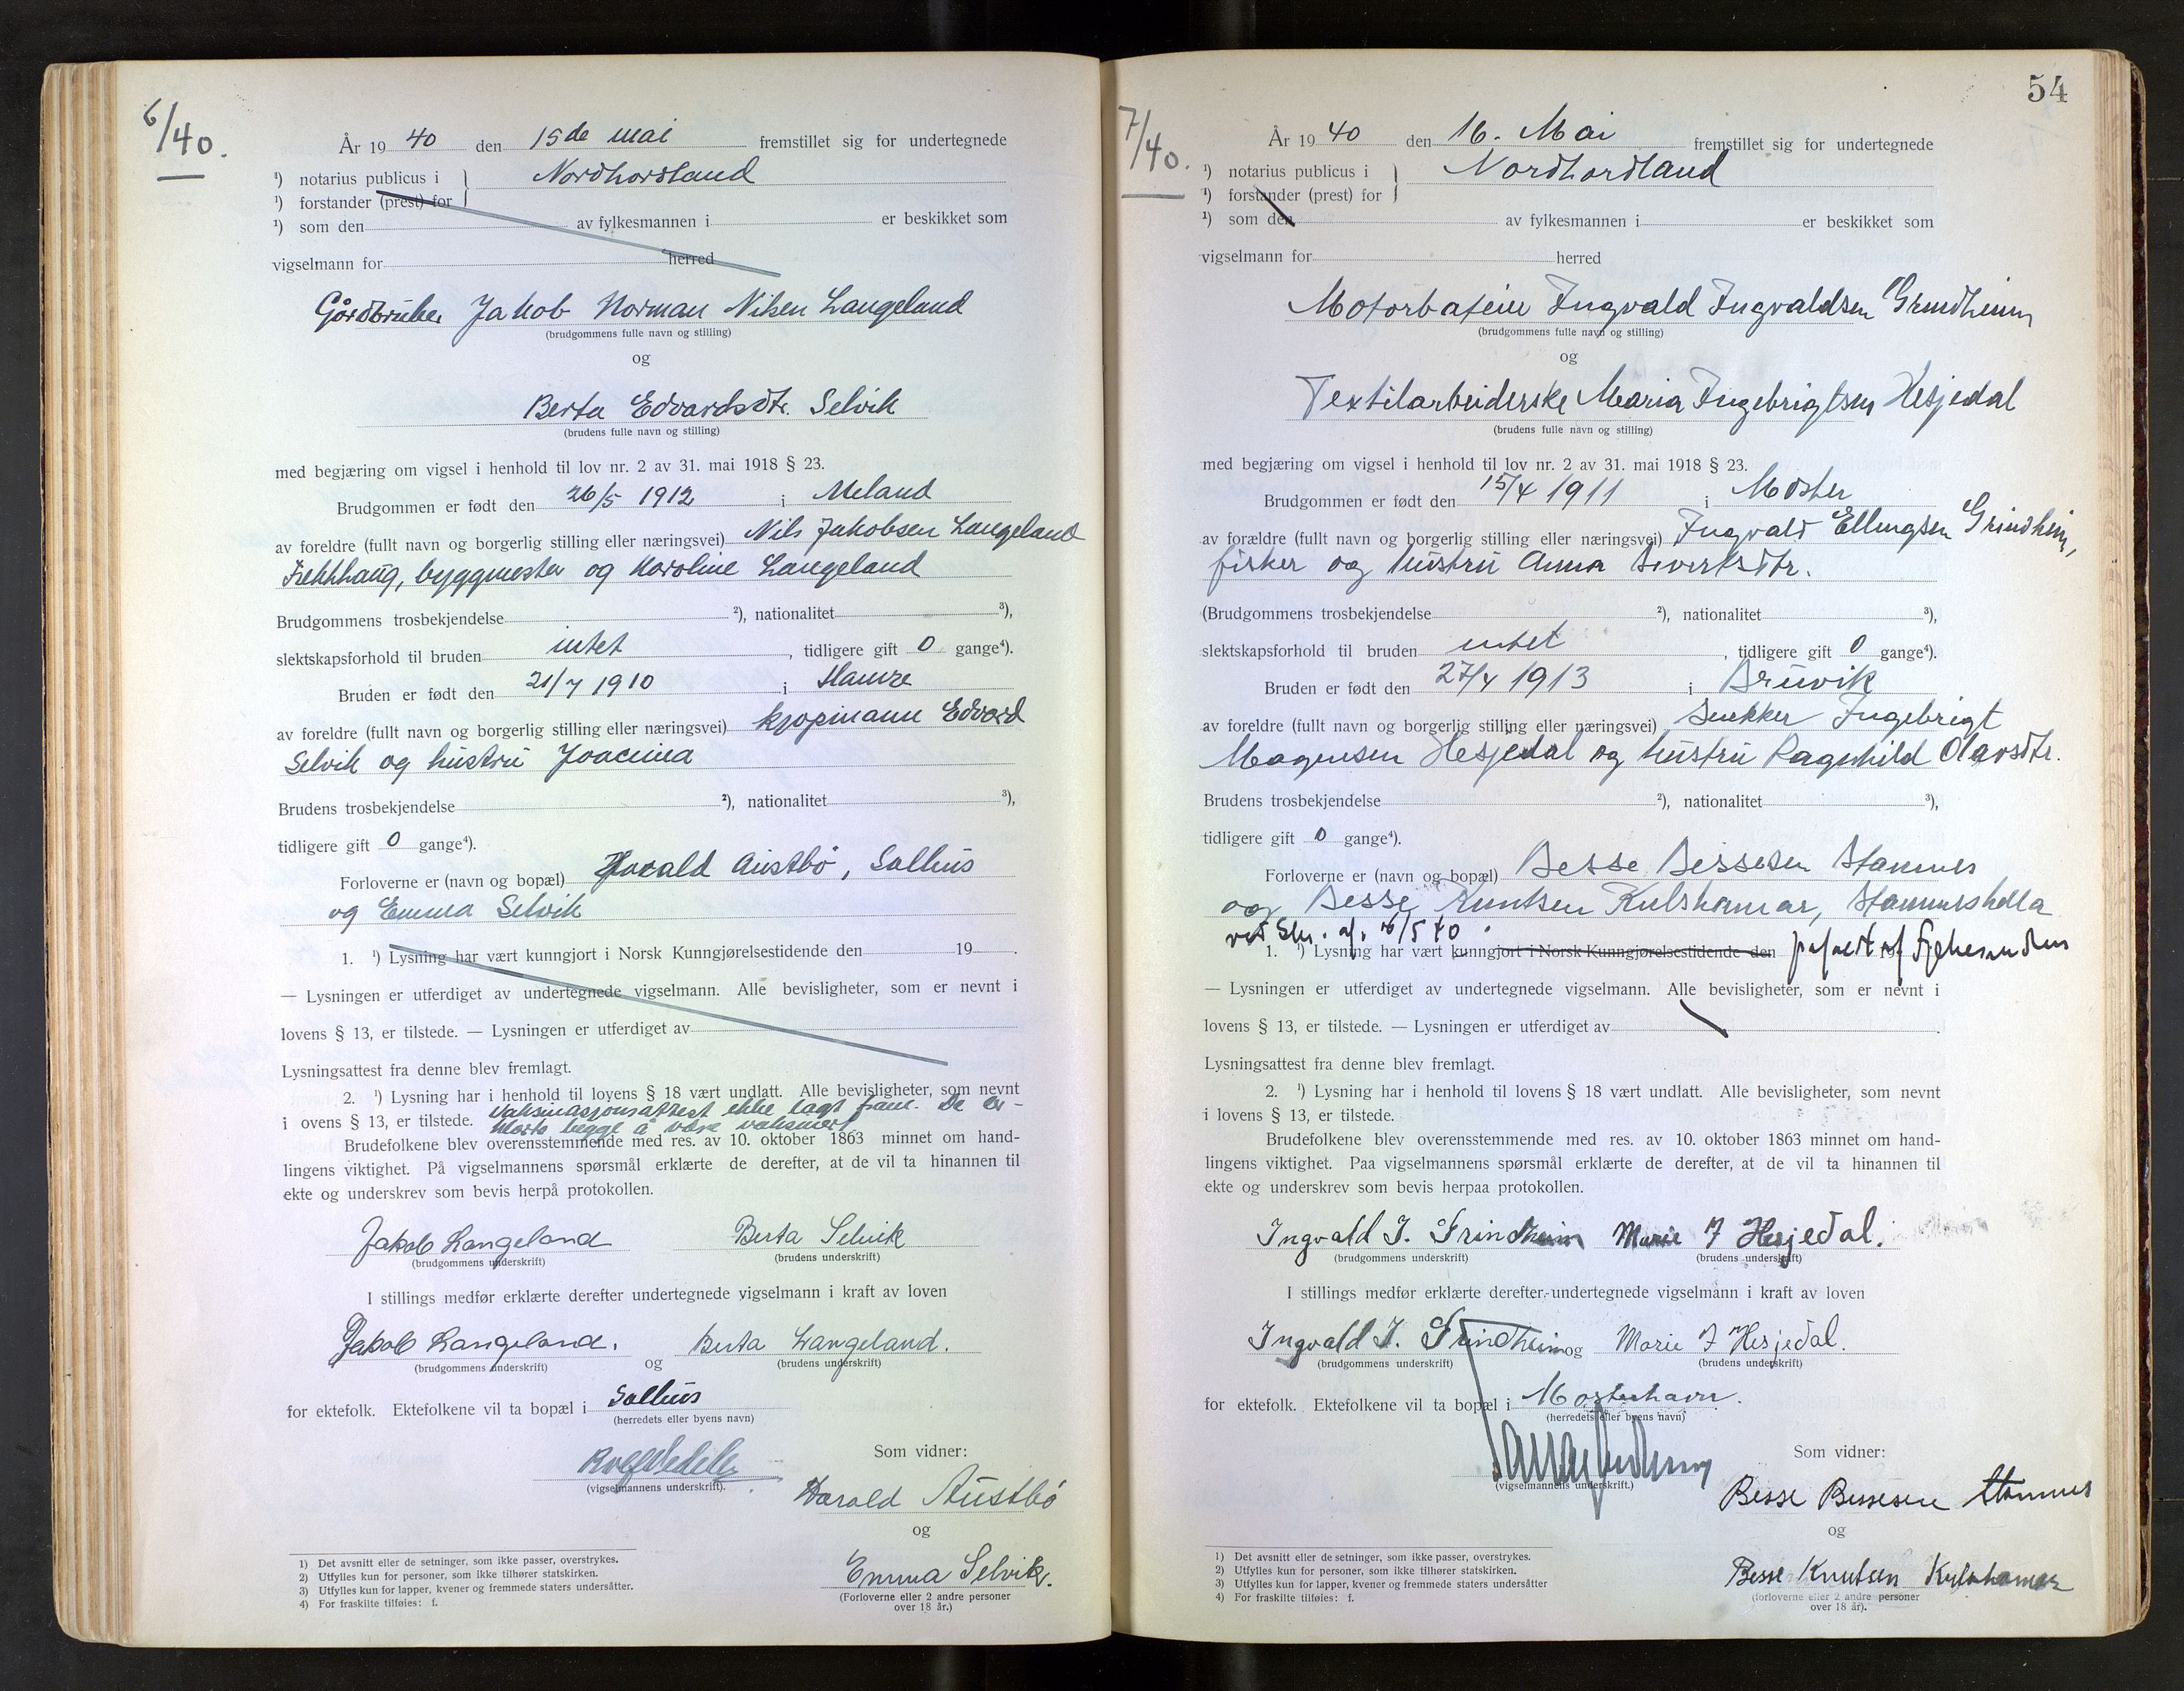 6/40.
År 19 40 den 15de mai fremstillet sig for undertegnede
¹) notarius publicus i Nordhordland
¹) forstander (prest) for
¹) som den av fylkesmannen i er beskikket som
vigselmann for herred
Gårdbruker Jakob Norman Nilsen Langeland
(brudgommens fulle navn og stilling)
og
Berta Edvardsdtr. Selvik
(brudens fulle navn og stilling)
med begjæring om vigsel i henhold til lov nr. 2 av 31. mai 1918 § 23.
Brudgommen er født den 26/5 1912 i Meland
av foreldre (fullt navn og borgerlig stilling eller næringsvei) Nils Jakobsen Langeland
byggmester og Karoline Langeland
Brudgommens trosbekjendelse ²), nationalitet ³),
slektskapsforhold til bruden intet, tidligere gift 0 gange⁴).
Bruden er født den 21/7 1910 i Hamre
av foreldre (fullt navn og borgerlig stilling eller næringsvei) kjøpmann Edvard
Selvik og hustru Joacima
Brudens trosbekjendelse ²), nationalitet ³),
tidligere gift 0 gange⁴).
Forloverne er (navn og bopæl) Harald Austbø, Salhus
og Emma Selvik
1. ¹) Lysning har vært kunngjort i Norsk Kunngjørelsestidende den 19 .
— Lysningen er utferdiget av undertegnede vigselmann. Alle bevisligheter, som er nevnt i
lovens § 13, er tilstede. — Lysningen er utferdiget av
Lysningsattest fra denne blev fremlagt.
2. ¹) Lysning har i henhold til lovens § 18 vært undlatt. Alle bevisligheter, som nevnt
i ovens § 13, er tilstede. Vaksinasjonsattest ikke lagt fram. De er-
klærte begge å være vaksinert
Brudefolkene blev overensstemmende med res. av 10. oktober 1863 minnet om hand-
lingens viktighet. På vigselmannens spørsmål erklærte de derefter, at de vil ta hinannen til
ekte og underskrev som bevis herpå protokollen.
Jakob Langeland Berta Selvik
(brudgommens underskrift) (brudens underskrift)
I stillings medfør erklærte derefter undertegnede vigselmann i kraft av loven
Jakob Langeland. og Berta Langeland.
(brudgommens underskrift) (brudens underskrift)
for ektefolk. Ektefolkene vil ta bopæl i Salhus
(herredets eller byens navn)
Som vidner:
(vigselmannens underskrift).
Harald Austbø
og
Emma Selvik.
(Forloverne eller 2 andre personer
over 18 år.)
1) Det avsnitt eller de setninger, som ikke passer, overstrykes.
2) Utfylles kun for personer, som ikke tilhører statskirken.
3) Utfylles kun for lapper, kvener og fremmede staters undersåtter.
4) For fraskilte tilføies: f.
54
7/40.
År 19 40 den 16. Mai fremstillet sig for undertegnede
¹) notarius publicus i Nordhordland
¹) forstander (prest) for
¹) som den av fylkesmannen i er beskikket som
vigselmann for herred
Ingvald Ingvaldsen Grindheim
(brudgommens fulle navn og stilling)
og
Textilarbeiderske Maria Ingebrigtsen Hesjedal
(brudens fulle navn og stilling)
med begjæring om vigsel i henhold til lov nr. 2 av 31. mai 1918 § 23.
Brudgommen er født den 15/4 1911 i Moster
av forældre (fullt navn og borgerlig stilling eller næringsvei) Ingvald Ellingsen Grindheim,
fisker og hustru Anna Siverksdtr.
(Brudgommens trosbekjendelse ²), nationalitet ³),
slektskapsforhold til bruden intet, tidligere gift 0 gange⁴).
Bruden er født den 27/4 1913 i Bruvik
av foreldre (fullt navn og borgerlig stilling eller næringsvei) Snekker Ingebrigt
Magnusen Hesjedal og hustru Ragnhild Olavsdtr.
Brudens trosbekjendelse ²), nationalitet ³),
tidligere gift 0 gange⁴).
Forloverne er (navn og bopæl) Besse Bessesen Stamnes
og Besse Knutsen Kulshamar, Stamneshella
16/5 40.
1. ¹) Lysning har vært kunngjort i Norsk Kunngjørelsestidende den 19
— Lysningen er utferdiget av undertegnede vigselmann. Alle bevisligheter, som er nevnt i
lovens § 13, er tilstede. — Lysningen er utferdiget av .
Lysningsattest fra denne blev fremlagt.
2. ¹) Lysning har i henhold til lovens § 18 vært undlatt. Alle bevisligheter, som nevnt
i lovens § 13, er tilstede.
Brudefolkene blev overensstemmende med res. av 10. oktober 1863 minnet om hand-
lingens viktighet. Paa vigselmannens spørsmål erklærte de derefter, at de vil ta hinannen til
ekte og underskrev som bevis herpaa protokollen.
Ingvald I. Grindheim Marie I Hesjedal.
(brudgommens underskrift) (brudens underskrift)
I stillings medfør erklærte derefter undertegnede vigselmann i kraft av loven
Ingvald I. Grindheim og Marie I Hesjedal.
(brudgommens underskrift) (brudens underskrift)
for ektefolk. Ektefolkene vil ta bopæl i Mosterhavn.
(herredets eller byens navn)
Som vidner:
(vigselmannens underskrift.)
Besse Bessesen Stamnes
og
Besse Knutsen Kulshamar
(forloverne eller 2 andre personer
over 18 år).
1) Det avsnitt eller de setninger, som ikke passer, overstrykes.
2) Utfylles kun for personer, som ikke tilhører statskirken.
3) Utfylles kun for lapper, kvener og fremmede staters undersåtter
4) For fraskilte tilføies: f.